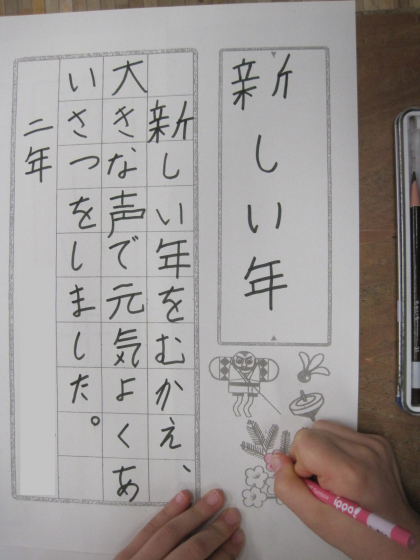 新しい年
新しい年をむかえ、
大きな声で元気よくあ
いさつをしました。
二年
ippo!